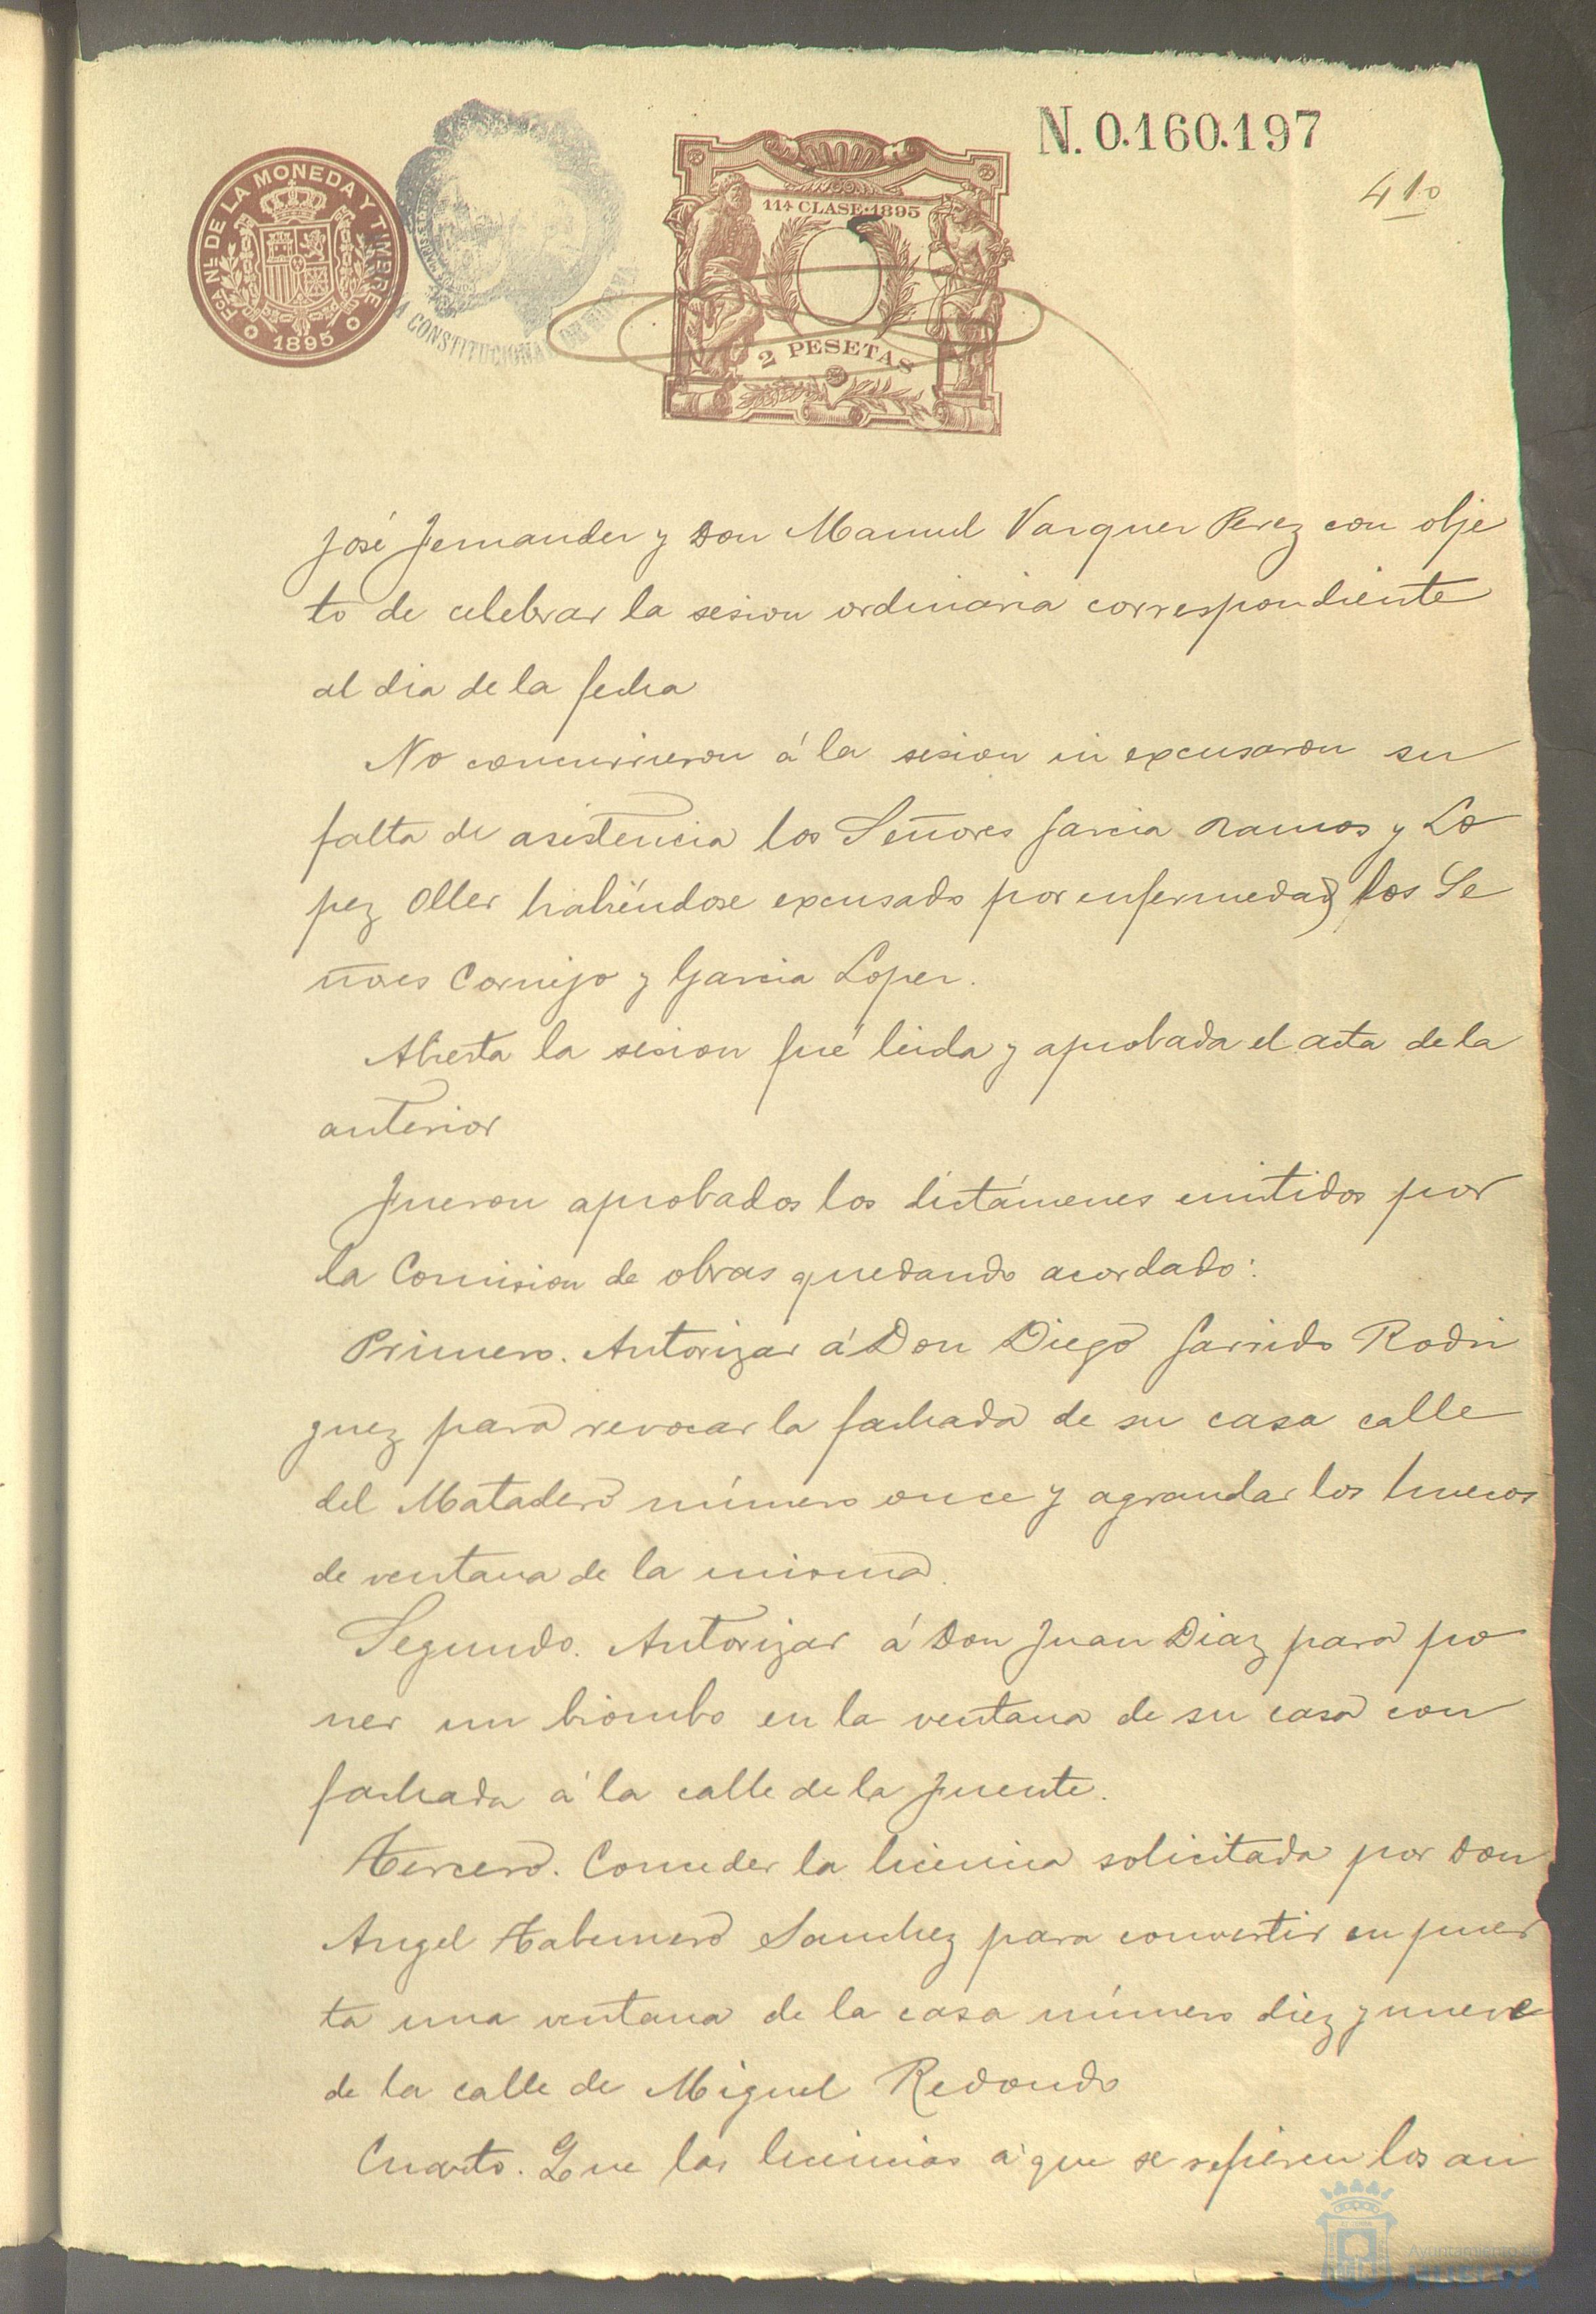 N. 0.160.197
41º
Fca. NL. DE LA MONEDA Y TIMBRE
1895
A CONSTITUCIONAL DE
11ª CLASE·1895
2 PESETAS
José Fernandez y Don Manuel Vazquez Perez con obje
to de celebrar la sesion ordinaria correspondiente
al dia de la fecha
No concurrieron á la sesion ni excusaron su
falta de asistencia los Señores Garcia Ramos y Lo
pez Oller habiéndose excusado por enfermedad los Se
ñores Cornejo y Garcia Lopez.
Abierta la sesion fué leida y aprobada el acta de la
anterior
Fueron aprobados los dictámenes emitidos por
la Comision de obras quedando acordado:
Primero. Autorizar á Don Diego Garrido Rodri
guez para revocar la fachada de su casa calle
del Matadero número once y agrandar los huecos
de ventana de la misma.
Segundo. Autorizar á Don Juan Diaz para po
ner un biombo en la ventana de su casa con
fachada á la calle de la Fuente.
Tercero. Conceder la licencia solicitada por Don
Angel Tabernero Sanchez para convertir en puer
ta una ventana de la casa número diez y nueve
de la calle de Miguel Redondo
Cuarto. Que las licencias á que se refieren los an
Ayuntamiento de
HUELVA